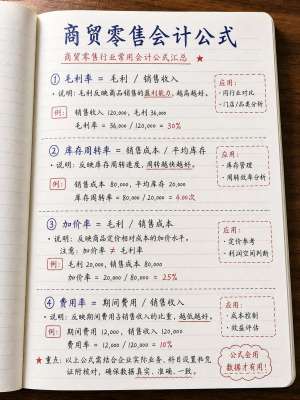 商贸零售会计公式
商贸零售行业常用会计公式汇总 ★
① 毛利率 = 毛利 / 销售收入
· 说明: 毛利反映商品销售的盈利能力, 越高越好。
例: 销售收入 120,000, 毛利 36,000
毛利率 = 36,000 / 120,000 = 30%
应用:
· 同行业对比
· 门店/品类分析
② 库存周转率 = 销售成本 / 平均库存
· 说明: 反映库存周转速度, 周转越快越好。
例: 销售成本 80,000, 平均库存 20,000
库存周转率 = 80,000 / 20,000 = 4.00次
应用:
· 库存管理
· 周转效率分析
③ 加价率 = 毛利 / 销售成本
· 说明: 反映商品定价相对成本的加价水平。
注意: 加价率 ≠ 毛利率
例: 毛利 20,000, 销售成本 80,000
加价率 = 20,000 / 80,000 = 25%
应用:
· 定价参考
· 利润空间判断
④ 费用率 = 期间费用 / 销售收入
· 说明: 反映期间费用占销售收入的比重, 越低越好。
例: 期间费用 12,000, 销售收入 120,000
费用率 = 12,000 / 120,000 = 10%
应用:
· 成本控制
· 效益评估
★ 重点: 以上公式需结合企业实际业务、科目设置和凭
证附核对, 确保数据真实、准确、一致。
公式会用
数据才有用!